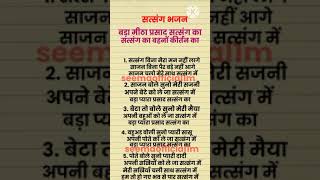 सत्संग भजन
बड़ा मीठा प्रसाद सत्संग का
संत्संग का बहनों कीर्तन का
1. सत्संग बिना मेरा मन नहीं लागे
साजन बिना पैर बड़े नहीं आगे
साजन चलो मेरे साथ सत्संग में
2. साजन बोले सुनो मेरी सजनी
अपने बेटे को ले जा सत्संग में
बड़ा प्यारा प्रसाद सत्संग का
seemaofficialjm
3. बेटा तो बोले सुनो मेरी मैया
अपनी बहुओं को ले जा सत्संग में
बड़ा प्यारा प्रसाद सत्संग का
4. बहुअड बोली सुनो प्यारी सासू
अपने पोते को ले जा सत्संग में
बड़ा प्यारा प्रसाद सत्संग का
seemaofficialjm
5. पोते बोले सुनो प्यारी दादी
अपनी सखियों को ले जा सत्संग में
मेरी सखियां चली साथ सत्संग में
हम तो हो गए भव से पार सत्संग में